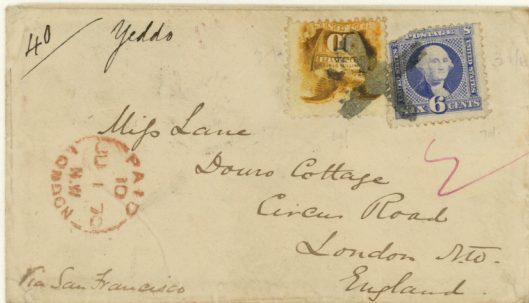 40/ Yeddo
10
UNITED STATES
SIX 6 CENTS
Miss Lane
Douro Cottage
Circus Road
London
England
LONDON N.W
PAID
10
JU 1 70
Via San Francisco